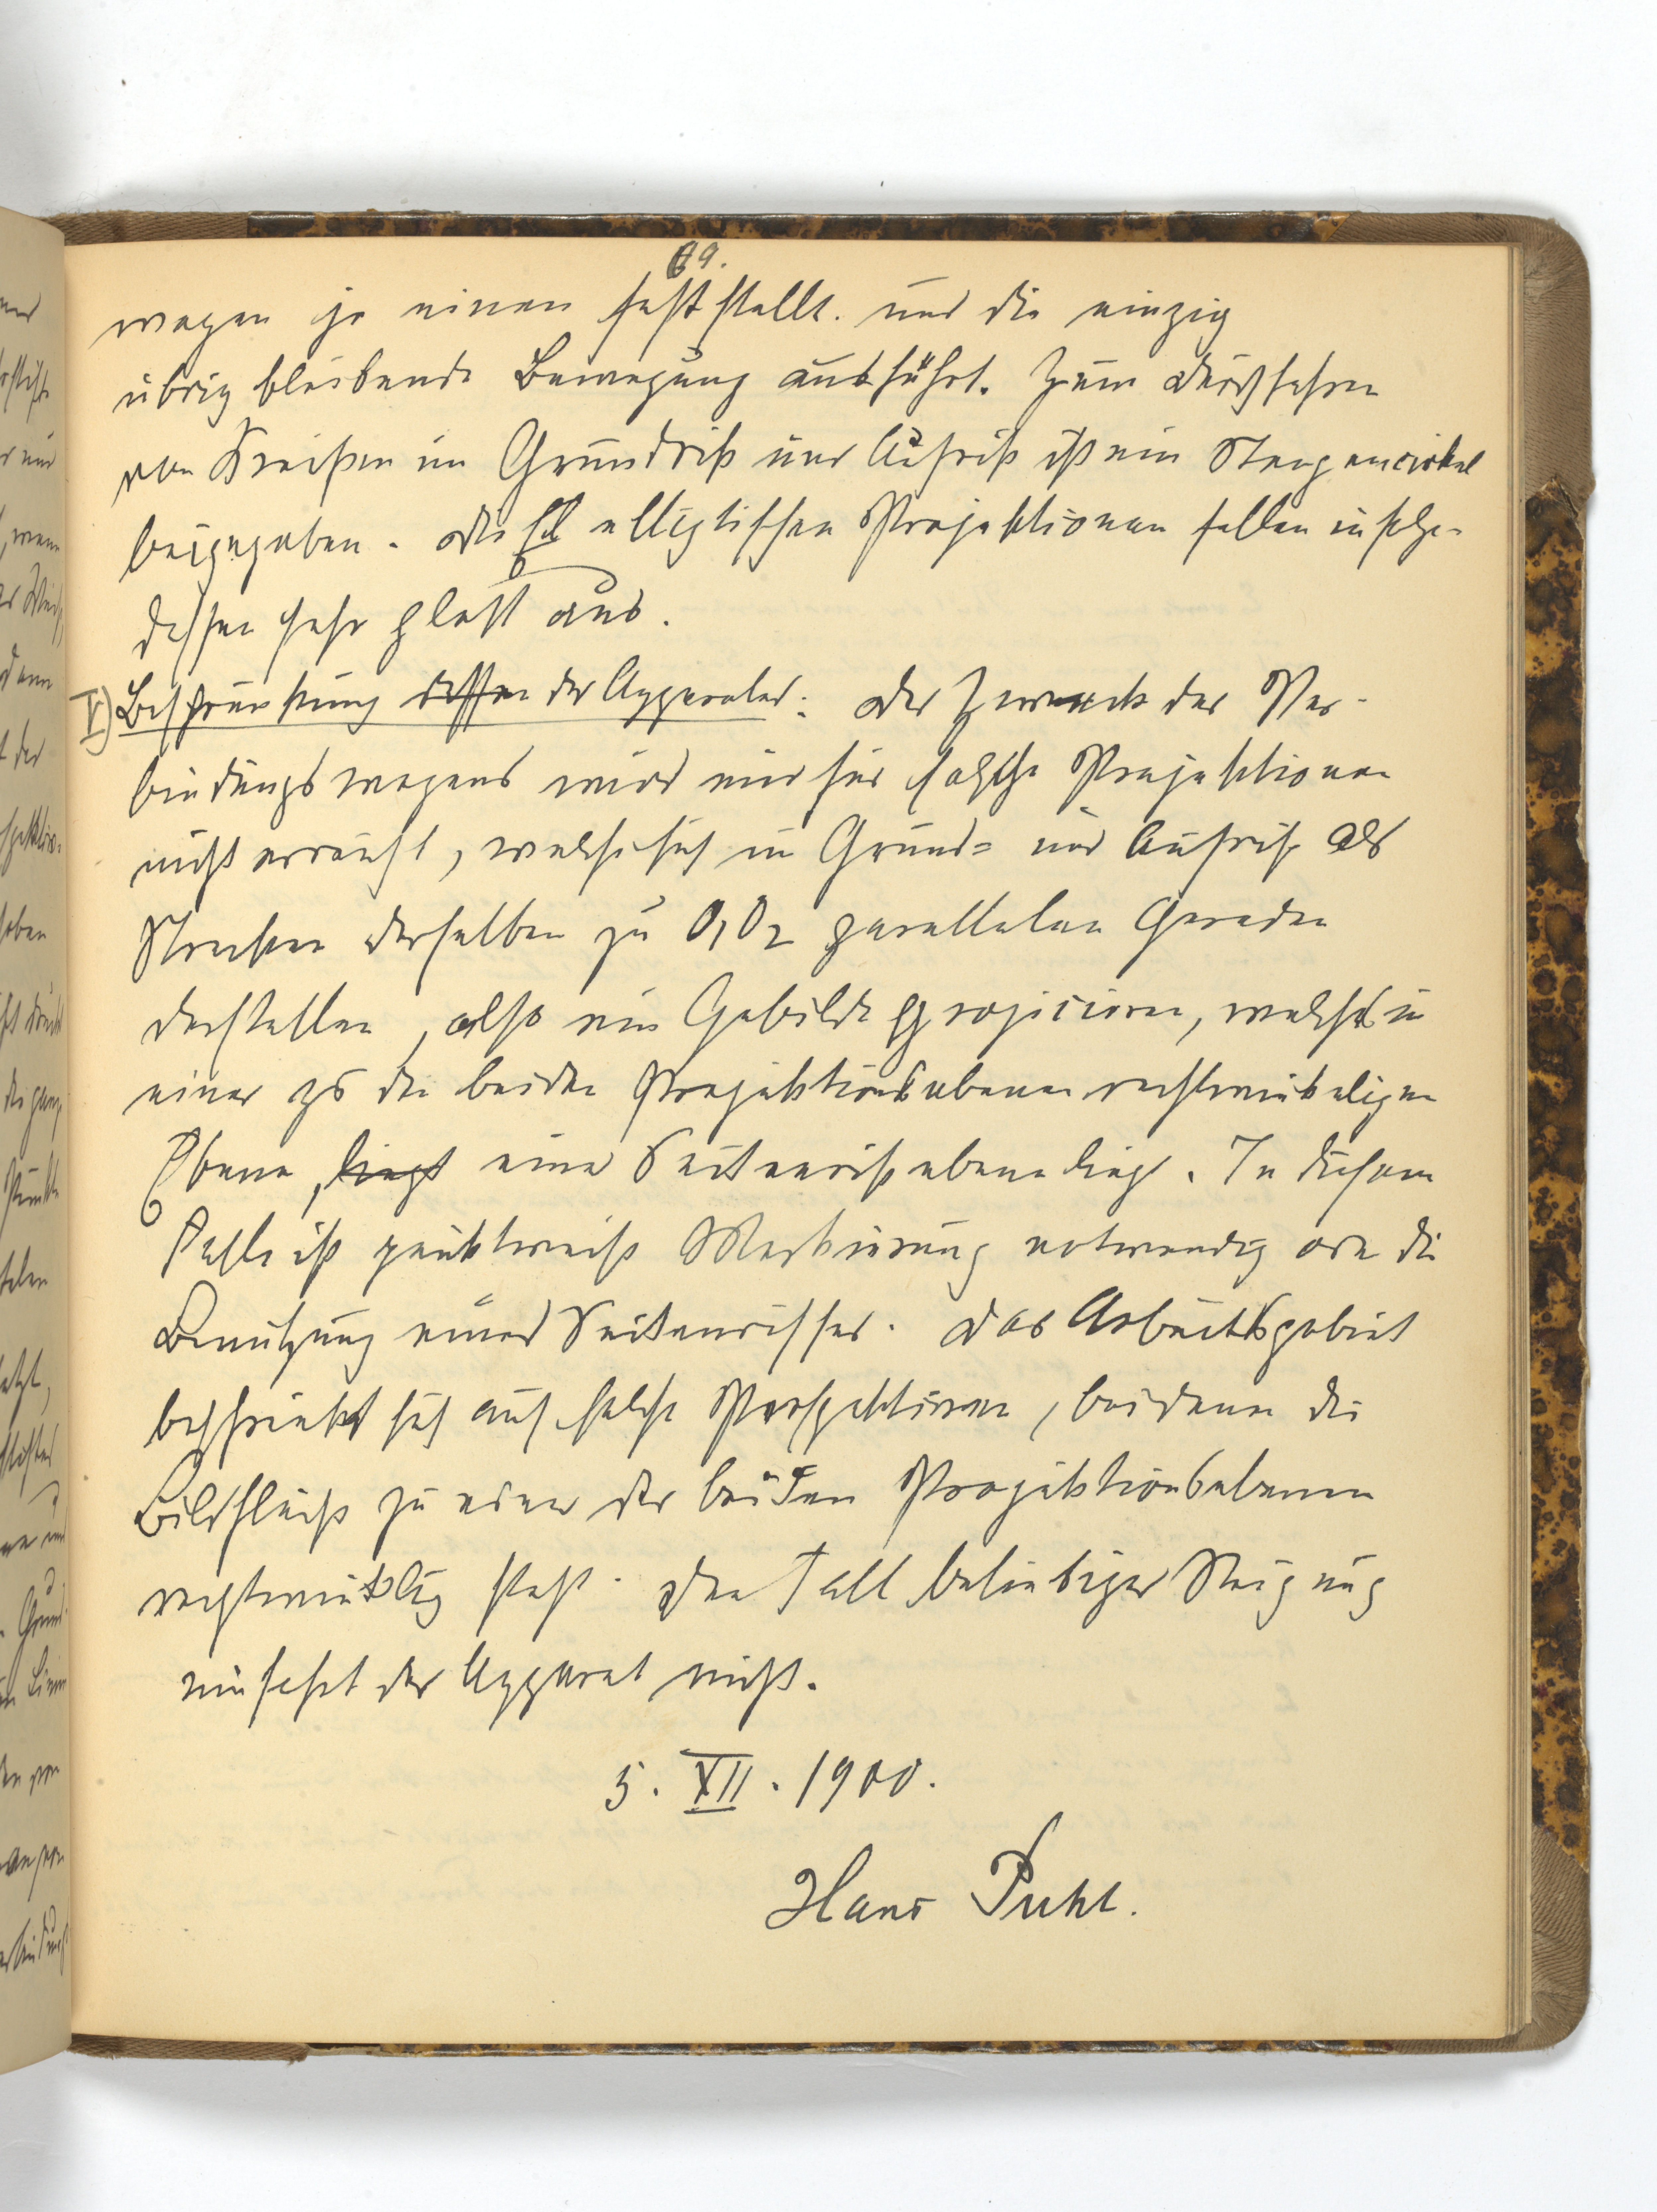 69.
wagen je einen feststellt. und die einzig
übrig bleibende Bewegung ausführt. Zum Durchfahren
von Kreisen im Grundriß und Aufriß ist ein Stangencirkel
beigegeben. Die elliptischen Projektionen fallen infolge-
dessen sehr glatt aus.
V) Beschränkung dessen des Apparates: Der Zweck des Ver-
bindungswagens wird nur für solche Projektionen
nicht erreicht, welche sich in Grund= und Aufriß als
Strecken derselben zu O1O2 parallelen Geraden
darstellen, also ein Gebilde projicieren, welches in
einer zu den beiden Projektionsebenen rechtwinkeligen
Ebene, liegt einer Seitenrißebene liegt. In diesem
Falle ist punktweise Markierung notwendig oder die
Benutzung eines Seitenrisses. Das Arbeitsgebiet
beschränkt sich auf solche Perspektiven, bei denen die
Bildfläche zu einer der beiden Projektionsebenen
rechtwinklig steht. Den Fall beliebiger Neigung
umfaßt der Apparat nicht.
5. XII. 1900.
Hans Puhl.